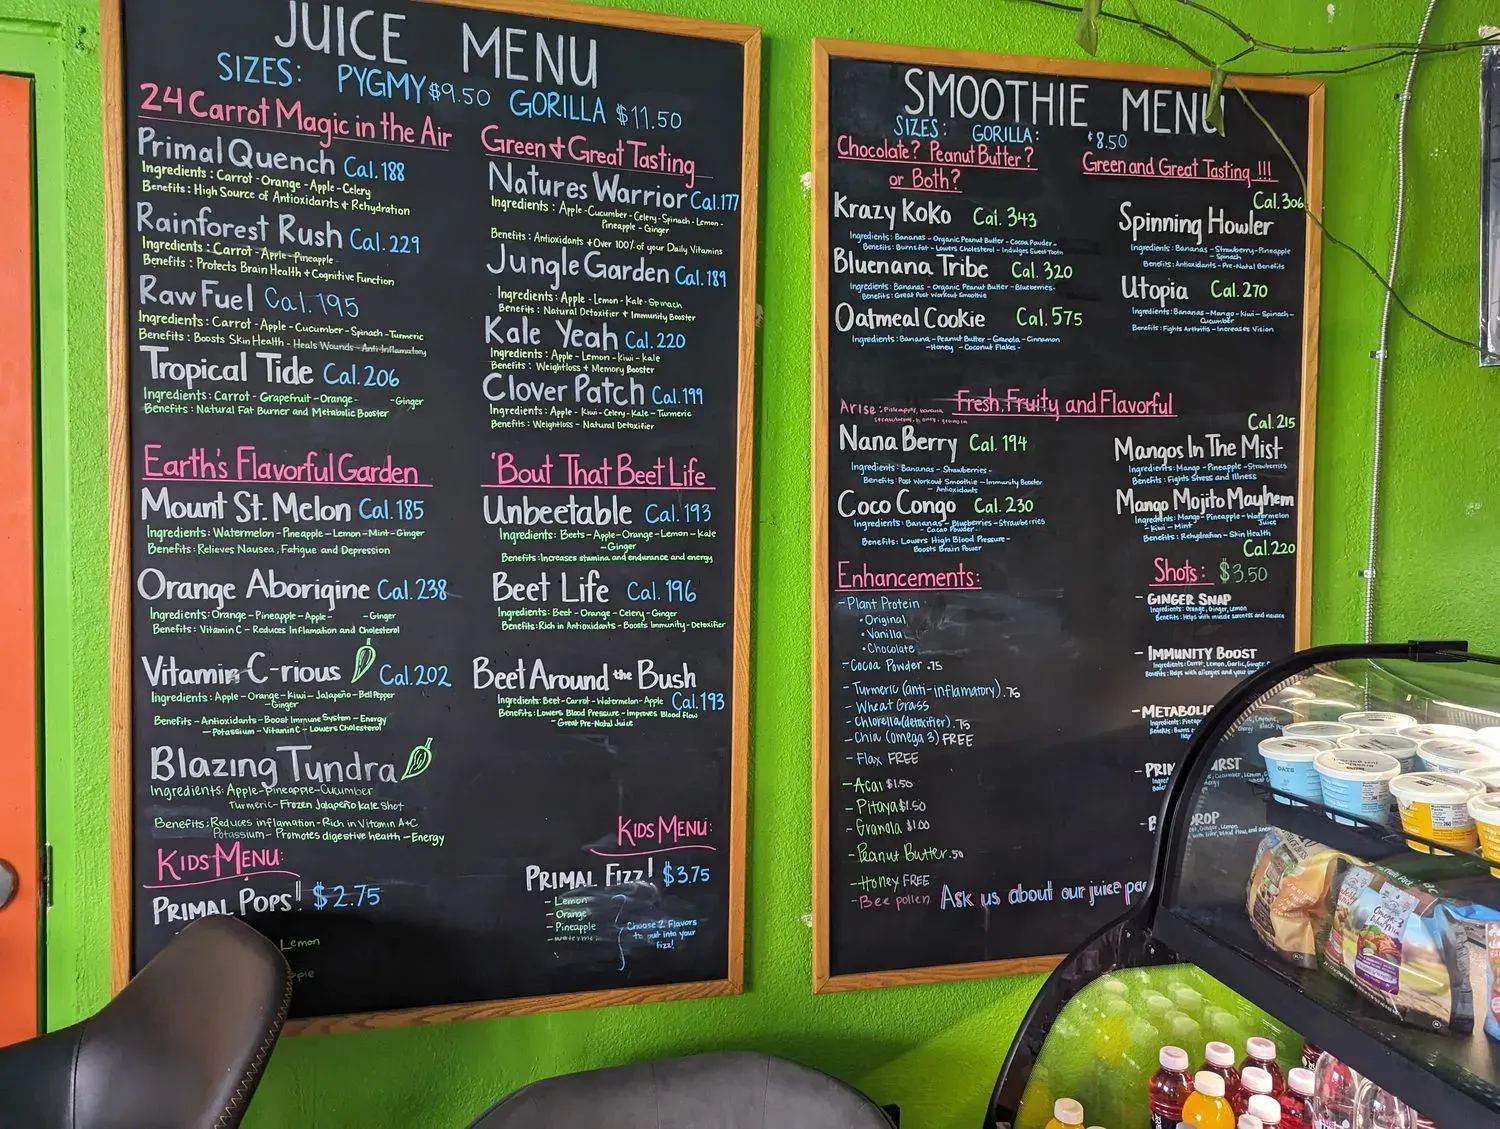 JUICE MENU
SIZES: PYGMY $9.50 GORILLA $11.50
24 Carrot Magic in the Air
Primal Quench Cal. 188
Ingredients: Carrot - Orange - Apple - Celery
Benefits: High Source of Antioxidants + Rehydration
Rainforest Rush Cal. 229
Ingredients: Carrot - Apple - Pineapple
Benefits: Protects Brain Health + Cognitive Function
Raw Fuel Cal. 195
Ingredients: Carrot - Apple - Cucumber - Spinach - Turmeric
Benefits: Boosts Skin Health - Heals Wounds - Anti-Inflamatory
Tropical Tide Cal. 206
Ingredients: Carrot - Grapefruit - Orange - - Ginger
Benefits: Natural Fat Burner and Metabolic Booster
Earth's Flavorful Garden
Mount St. Melon Cal. 185
Ingredients: Watermelon - Pineapple - Lemon - Mint - Ginger
Benefits: Relieves Nausea, Fatigue and Depression
Orange Aborigine Cal. 238
Ingredients: Orange - Pineapple - Apple - - Ginger
Benefits: Vitamin C - Reduces Inflamation and Cholesterol
Vitamin C-rious Cal. 202
Ingredients: Apple - Orange - Kiwi - Jalapeño - Bell Pepper
- Ginger
Benefits - Antioxidants - Boost Immune System - Energy
- Potassium - Vitamin C - Lowers Cholesterol
Blazing Tundra
Ingredients: Apple - Pineapple - Cucumber
Turmeric - Frozen Jalapeño Kale Shot
Benefits: Reduces inflamation - Rich in Vitamin A+C
Potassium - Promotes digestive health - Energy
KIDS MENU:
PRIMAL POPS! $2.75
Lemon
Green + Great Tasting
Natures Warrior Cal. 177
Ingredients: Apple - Cucumber - Celery - Spinach - Lemon -
Pineapple - Ginger
Benefits: Antioxidants + Over 100% of your Daily Vitamins
Jungle Garden Cal. 189
Ingredients: Apple - Lemon - Kale - Spinach
Benefits: Natural Detoxifier + Immunity Booster
Kale Yeah Cal. 220
Ingredients: Apple - Lemon - Kiwi - Kale
Benefits: Weightloss + Memory Booster
Clover Patch Cal. 199
Ingredients: Apple - Kiwi - Celery - Kale - Turmeric
Benefits: Weightloss - Natural Detoxifier
'Bout That Beet Life
Unbeetable Cal. 193
Ingredients: Beets - Apple - Orange - Lemon - Kale
- Ginger
Benefits: Increases stamina and endurance and energy
Beet Life Cal. 196
Ingredients: Beet - Orange - Celery - Ginger
Benefits: Rich in Antioxidants - Boosts Immunity - Detoxifier
Beet Around the Bush
Cal. 193
Ingredients: Beet - Carrot - Watermelon - Apple
Benefits: Lowers Blood Pressure - Improves Blood Flow
- Great Pre-Natal Juice
KIDS MENU:
PRIMAL FIZZ! $3.75
- Lemon
- Orange
- Pineapple
Choose 2 Flavors
to put into your
fizz!
SMOOTHIE MENU
SIZES: GORILLA: $8.50
Chocolate? Peanut Butter?
or Both?
Krazy Koko Cal. 343
Ingredients: Bananas - Organic Peanut Butter - Cocoa Powder -
Benefits: Burns Fat - Lowers Cholesterol - Indulges Sweet Tooth
Bluenana Tribe Cal. 320
Ingredients: Bananas - Organic Peanut Butter - Blueberries -
Benefits: Great Post Workout Smoothie
Oatmeal Cookie Cal. 575
Ingredients: Banana - Peanut Butter - Granola - Cinnamon
- Honey - Coconut Flakes -
Green and Great Tasting !!!
Cal. 306
Spinning Howler
Ingredients: Bananas - Strawberry - Pineapple
- Spinach
Benefits: Antioxidants - Pre-Natal Benefits
Utopia Cal. 270
Ingredients: Bananas - Mango - Kiwi - Spinach -
Cucumber
Benefits: Fights Arthritis - Increases Vision
Fresh, Fruity and Flavorful
Arise: Pineapple, banana
strawberry, honey, granola
Nana Berry Cal. 194
Ingredients: Bananas - Strawberries -
Benefits: Post Workout Smoothie - Immunity Booster
- Antioxidants
Coco Congo Cal. 230
Ingredients: Bananas - Blueberries - Strawberries
- Cacao Powder -
Benefits: Lowers High Blood Pressure -
Boosts Brain Power
Cal. 215
Mangos In The Mist
Ingredients: Mango - Pineapple - Strawberries
Benefits: Fights Stress and Illness
Mango Mojito Mayhem
Ingredients: Mango - Pineapple - Watermelon
- Kiwi - Mint Juice
Benefits: Rehydration - Skin Health
Cal. 220
Enhancements:
- Plant Protein
• Original
• Vanilla
• Chocolate
- Cocoa Powder .75
- Turmeric (anti-inflamatory) .75
- Wheat Grass
- Chlorella (detoxifier) .75
- Chia (omega 3) FREE
- Flax FREE
- Acai $1.50
- Pitaya $1.50
- Granola $1.00
- Peanut Butter .50
- Honey FREE
- Bee pollen
Ask us about our juice
Shots: $3.50
- GINGER SNAP
Ingredients: Orange, Ginger, Lemon
Benefits: Helps with muscle soreness and nausea
- IMMUNITY BOOST
Ingredients: Carrot, Lemon, Garlic, Ginger
Benefits: Helps with allergies and your
OATS